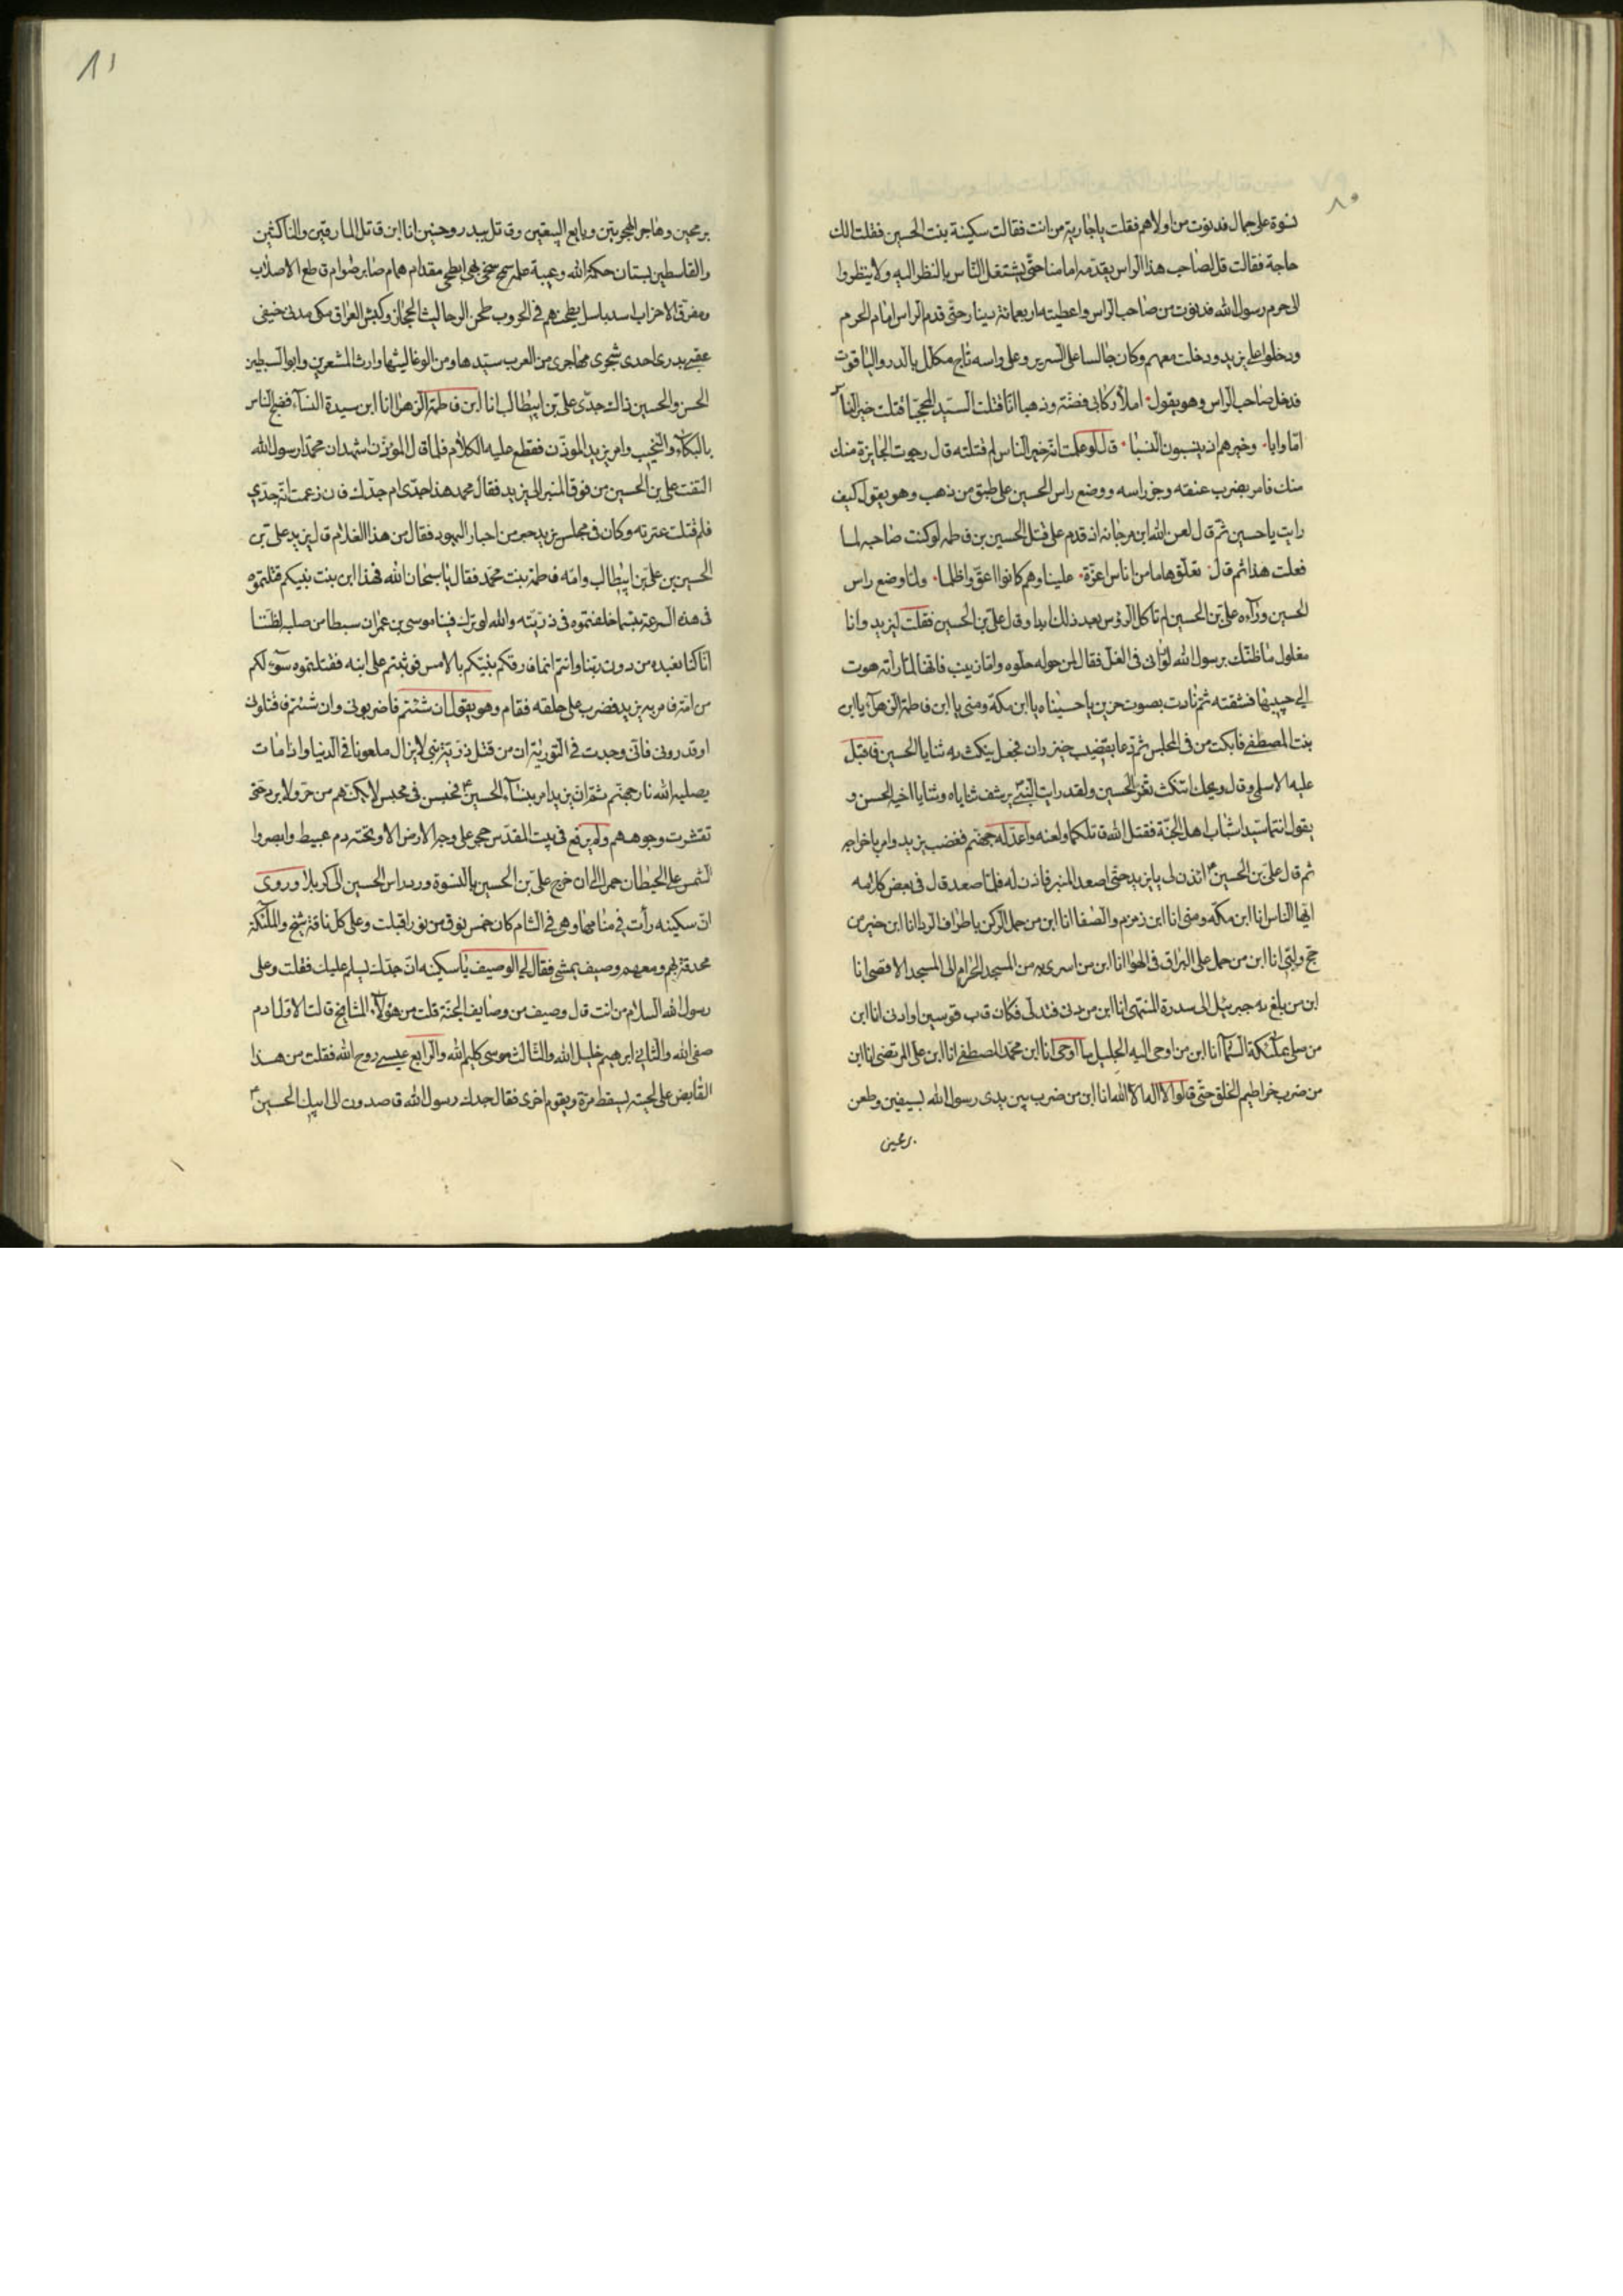 ٨٠
نسوة على جمال فدنوت من اولاهم فقلت يا جارية من انت فقالت سكينة بنت الحسين فقلت الك
حاجة فقالت قل لصاحب هذا الراس يقدمه امامنا حتى يشتغل الناس بالنظر اليه ولا ينظروا
الى حرم رسول الله فدنوت من صاحب الراس واعطيته اربعمائة دينار حتى قدم الراس امام الحرم
ودخلوا على يزيد ودخلت معهم وكان جالسا على السرير وعلى راسه تاج مكلل بالدر والياقوت
فدخل صاحب الراس وهو يقول املأ ركابى فضة وذهبا انا قتلت السيد المحجبا قتلت خير الناس
اما وابا وخيرهم اذ ينسبون النسبا قال لو علمت انه خير الناس لم قتلته قال رجوت الجايزة منك
منك فامر بضرب عنقه وجز راسه ووضع راس الحسين على طبق من ذهب وهو يقول كيف
رايت يا حسين ثم قال لعن الله ابن مرجانه اذ قدم على قتل الحسين بن فاطمه لو كنت صاحبه لما
فعلت هذا ثم قال نفلق هاما من اناس اعزة علينا وهم كانوا اعق واظلما ولما وضع راس
الحسين ورآه على بن الحسين لم تاكل الرؤس بعد ذلك ابدا وقال على بن الحسين فقلت ليزيد وانا
مغلول ما ظنك برسول الله لو رانى فى الغل فقال لمن حوله حلوه واما زينب فانها لما راته هوت
الى جيبها فشقته ثم نادت بصوت حزين يا حسيناه يا ابن مكة ومنى يا ابن فاطمة الزهرآء يا ابن
بنت المصطفى فابكت من فى المجلس ثم دعا بقضيب خيزران فجعل ينكث به ثنايا الحسين فاقبل
عليه الاسلمى وقال ويحك اتنكث ثغر الحسين ولقد رايت النبى يرشف ثناياه وثنايا اخيه الحسن و
يقول انتما سيدا شباب اهل الجنة فقتل الله قاتلكما ولعنه واعد له جهنم فغضب يزيد وامر باخراجه
ثم قال على بن الحسين ائذن لى يا يزيد حتى اصعد المنبر فاذن له فلما صعد قال فى بعض كلامه
ايها الناس انا ابن مكه ومنى انا ابن زمزم والصفا انا ابن من حمل الركن باطراف الردا انا ابن خير من
حج ولبى انا ابن من حمل على البراق فى الهوا انا ابن من اسرى به من المسجد الحرام الى المسجد الاقصى انا
ابن من بلغ به جبرئيل الى سدرة المنتهى انا ابن من دنى فتدلى فكان قاب قوسين او ادنى انا ابن
من صلى بملئكة السمآء انا ابن من اوحى اليه الجليل ما اوحى انا ابن محمد المصطفى انا ابن على المرتضى انا ابن
من ضرب خراطيم الخلق حتى قالوا لا اله الا الله انا ابن من ضرب بين يدى رسول الله بسيفين وطعن
برمحين
٨١
برمحين وهاجر الهجرتين وبايع البيعتين وقاتل ببدر وحنين انا ابن قاتل المارقين والناكثين
والقاسطين بستان حكمة الله وعيبة علمه سمح سخى بهى ابطحى مقدام همام صابر صوام قاطع الاصلاب
ومفرق الاحزاب اسد باسل يطحنهم فى الحروب طحن الرحا ليث الحجاز وكبش العراق مكى مدنى خيفى
عقبى بدرى احدى شجرى مهاجرى من العرب سيدها ومن الوغا ليثها وارث المشعرين وابو السبطين
الحسن والحسين ذاك جدى على بن ابيطالب انا ابن فاطمة الزهرا انا ابن سيدة النسآء فضج الناس
بالبكآء والنحيب وامر يزيد الموذن فقطع عليه الكلام فلما قال الموذن اشهد ان محمدا رسول الله
التفت على بن الحسين من فوق المنبر الى يزيد فقال محمد هذا جدى ام جدك فان زعمت انه جدى
فلم قتلت عترته وكان فى مجلس يزيد حبر من احبار اليهود فقال من هذا الغلام قال يزيد على بن
الحسين بن على بن ابيطالب وامه فاطمة بنت محمد فقال يا سبحان الله فهذا ابن بنت نبيكم قتلتموه
فى هذه السرعة بئسما خلفتموه فى ذريته والله لو ترك فينا موسى بن عمران سبطا من صلبه لظننا
انا كنا نعبده من دون ربنا وانتم انما فارقكم نبيكم بالامس فوثبتم على ابنه فقتلتموه سوءة لكم
من امة فامر به يزيد فضرب على حلقه فقام وهو يقول ان شئتم فاضربونى وان شئتم فاقتلونى
او تدرونى فانى وجدت فى التورية ان من قتل ذرية نبى لا يزال ملعونا فى الدنيا واذا مات
يصليه الله نار جهنم ثم ان يزيد امر بنسآء الحسين فحبسن فى محبس لا يكنهم من حر ولا برد حتى
تقشرت وجوههم ولم يرفع فى بيت المقدس حجر على وجه الارض الا وتحته دم عبيط وابصروا
الشمس على الحيطان حمرا الى ان خرج على بن الحسين بالنسوة ورد راس الحسين الى كربلا وروى
ان سكينه رأت فى منامها وهى فى الشام كان خمس نوق من نور اقبلت وعلى كل ناقة شيخ والملئكة
محدقة بهم ومعهم وصيف يمشى فقال لى الوصيف يا سكينه ان جدك يسلم عليك فقلت وعلى
رسول الله السلام من انت قال وصيف من وصايف الجنة قلت من هؤلآء المشايخ قال الاول ادم
صفى الله والثانى ابرهيم خليل الله والثالث موسى كليم الله والرابع عيسى روح الله فقلت من هذا
القابض على لحيته يسقط مرة ويقوم اخرى فقال جدك رسول الله قاصدون الى ابيك الحسين